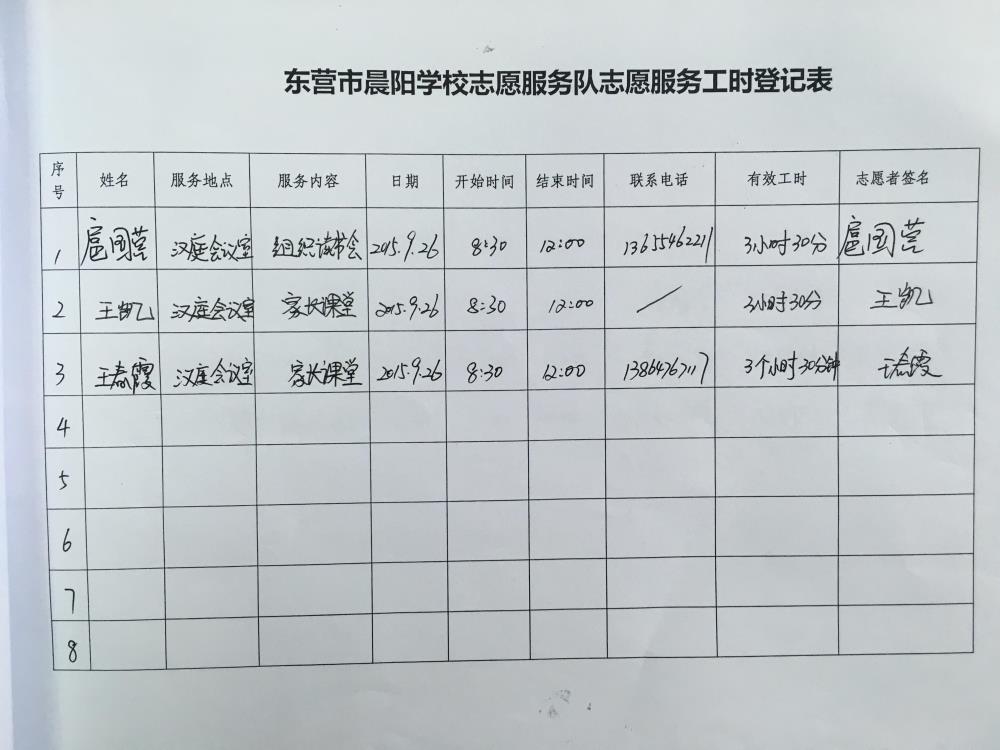 东营市晨阳学校志愿服务队志愿服务工时登记表
序号 姓名 服务地点 服务内容 日期 开始时间 结束时间 联系电话 有效工时 志愿者签名
1 扈国营 汉庭会议室 组织读书会 2015.9.26 8:30 12:00 13655462211 3小时30分 扈国营
2 王凯 汉庭会议室 家长课堂 2015.9.26 8:30 12:00 / 3小时30分 王凯
3 王春霞 汉庭会议室 家长课堂 2015.9.26 8:30 12:00 3个小时30分钟 王春霞
4
5
6
7
8